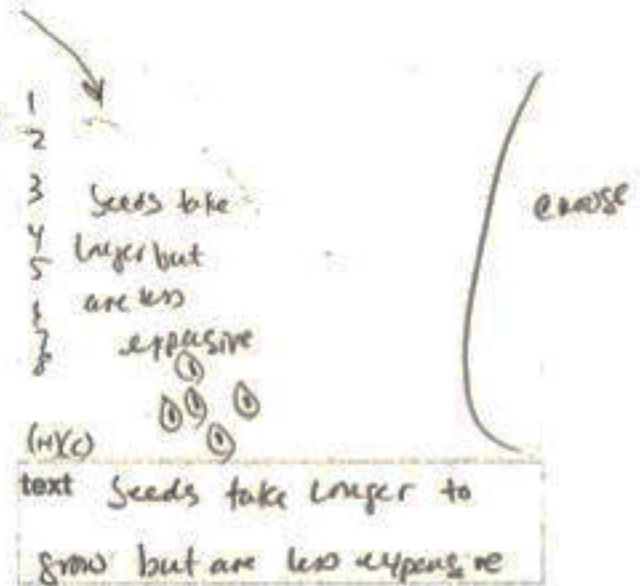 1
2
3 Seeds take
4 longer but
5
6 are less
7 expensive
8
(M)(C)
text Seeds take longer to
grow but are less expensive